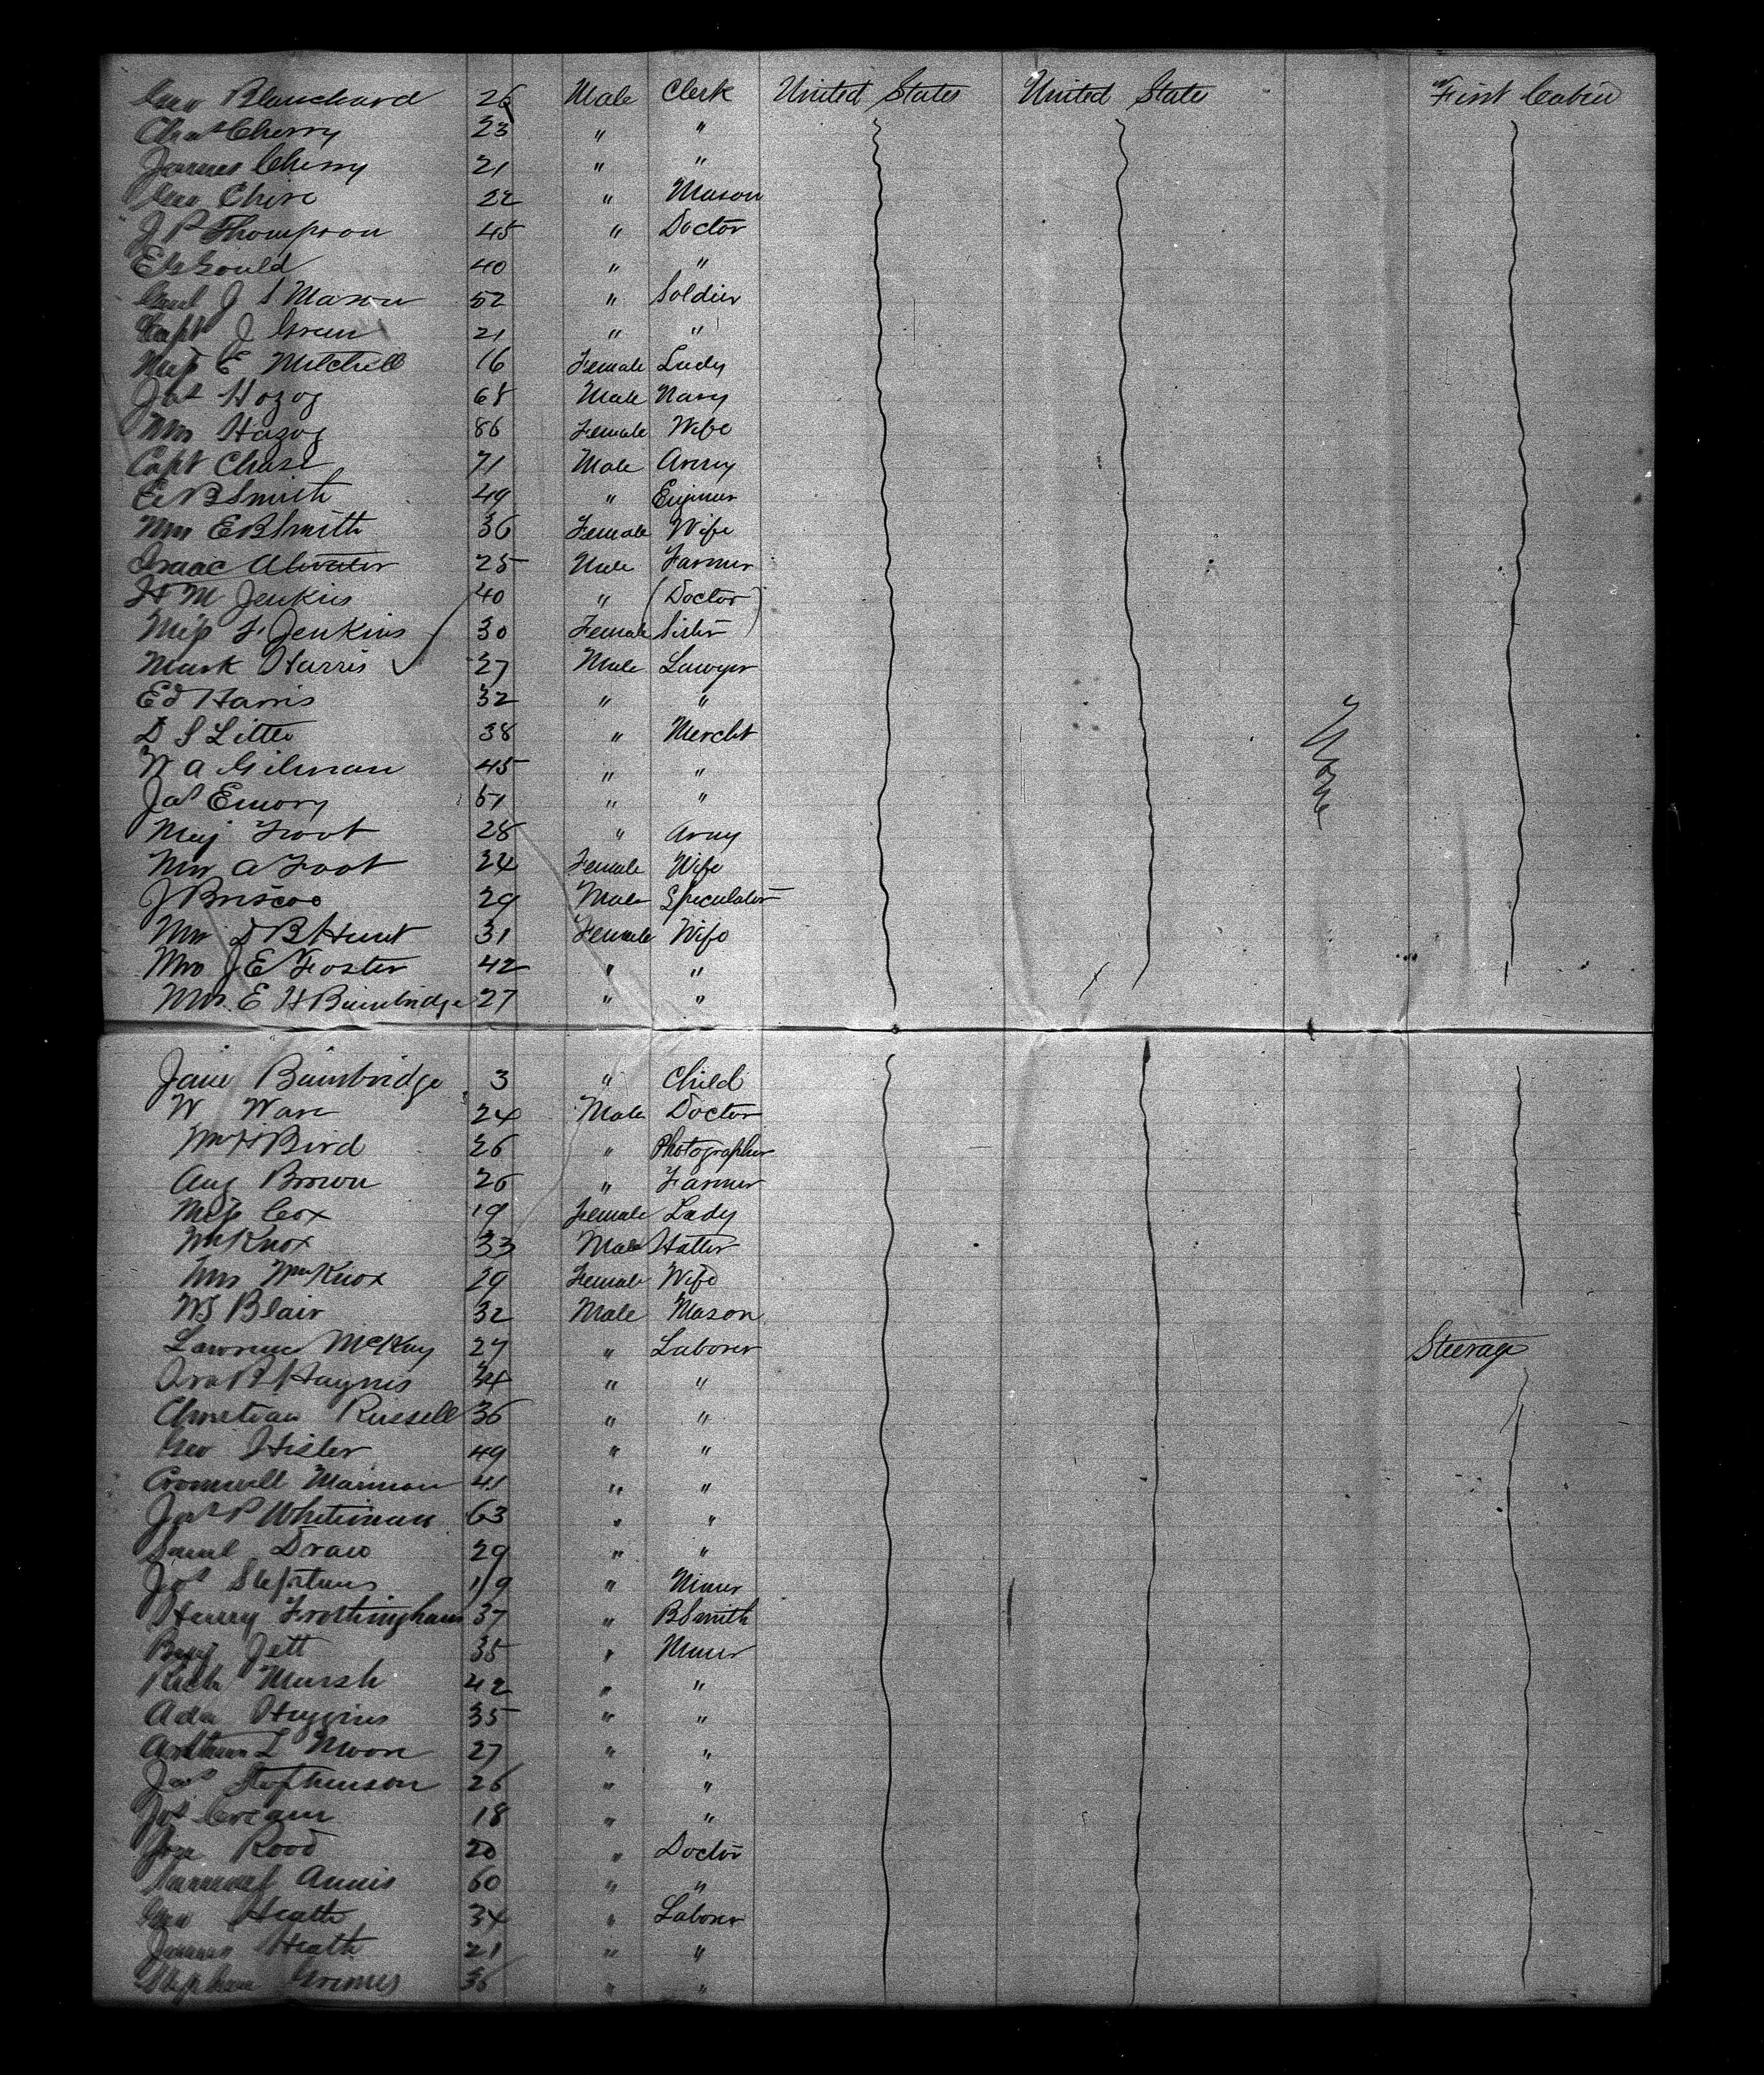 Geo Blanchard 26 Male Clerk United States United States First Cabin
Chas Cherry 23 " "
James Cherry 21 " "
Geo 22 " Mason
J P Thompson 45 " Doctor
E G Gould 40 " "
Genl J S Mason 52 " Soldier
Capt J Green 21 " "
Miss E Mitchell 16 Female Lady
Jas Hozog 68 Male Navy
Mrs Hazog 86 Female Wife
Capt Chase 71 Male Army
E B Smith 49 " Enginer
Mrs E B Smith 36 Female Wife
Isaac Atwater 25 Male Farmer
H M Jenkins 40 " (Doctor)
Miss F Jenkins 30 Female Sister
Mark Harris 27 Male Lawyer
Ed Harris 32 " "
D S Litte 38 " Mercht
W A Gilman 45 " "
Jas Emory 51 " " None
Maj Foot 28 " Army
Mrs A Foot 24 Female Wife
J Briscoe 29 Male Speculator
Mrs D B Hunt 31 Female Wife
Mrs J E Foster 42 " "
Mrs. E H Bainbridge 27 " "
Jane Bainbridge 3 " Child
W Ware 24 Male Doctor
Wm H Bird 26 " Photographer
Aug Brown 26 " Farmer
Miss Cox 19 Female Lady
Wm Knox 33 Male Hatter
Mrs Wm Knox 29 Female Wife
W S Blair 32 Male Mason
Lawrence McKay 27 " Laborer Steerage
Ora B Haynes 34 " "
Christian Russell 36 " "
Geo Hisler 49 " "
Cromwell 41 " "
Jas P Whiteman 63 " "
Saml Draw 29 " "
Jos Stephens 19 " Miner
Henry Frothingham 37 " B Smith
Benj Jett 35 " Miner
Rich Marsh 42 " "
Ada Huggins 35 " "
Arthur L Moore 27 " "
Jas Stephenson 26 " "
Jos Cream 18 " "
Jose Rood 20 " Doctor
Annis 60 " "
Geo Heath 34 " Laborer
James Heath 21 " "
Stephen Grimes 36 " "